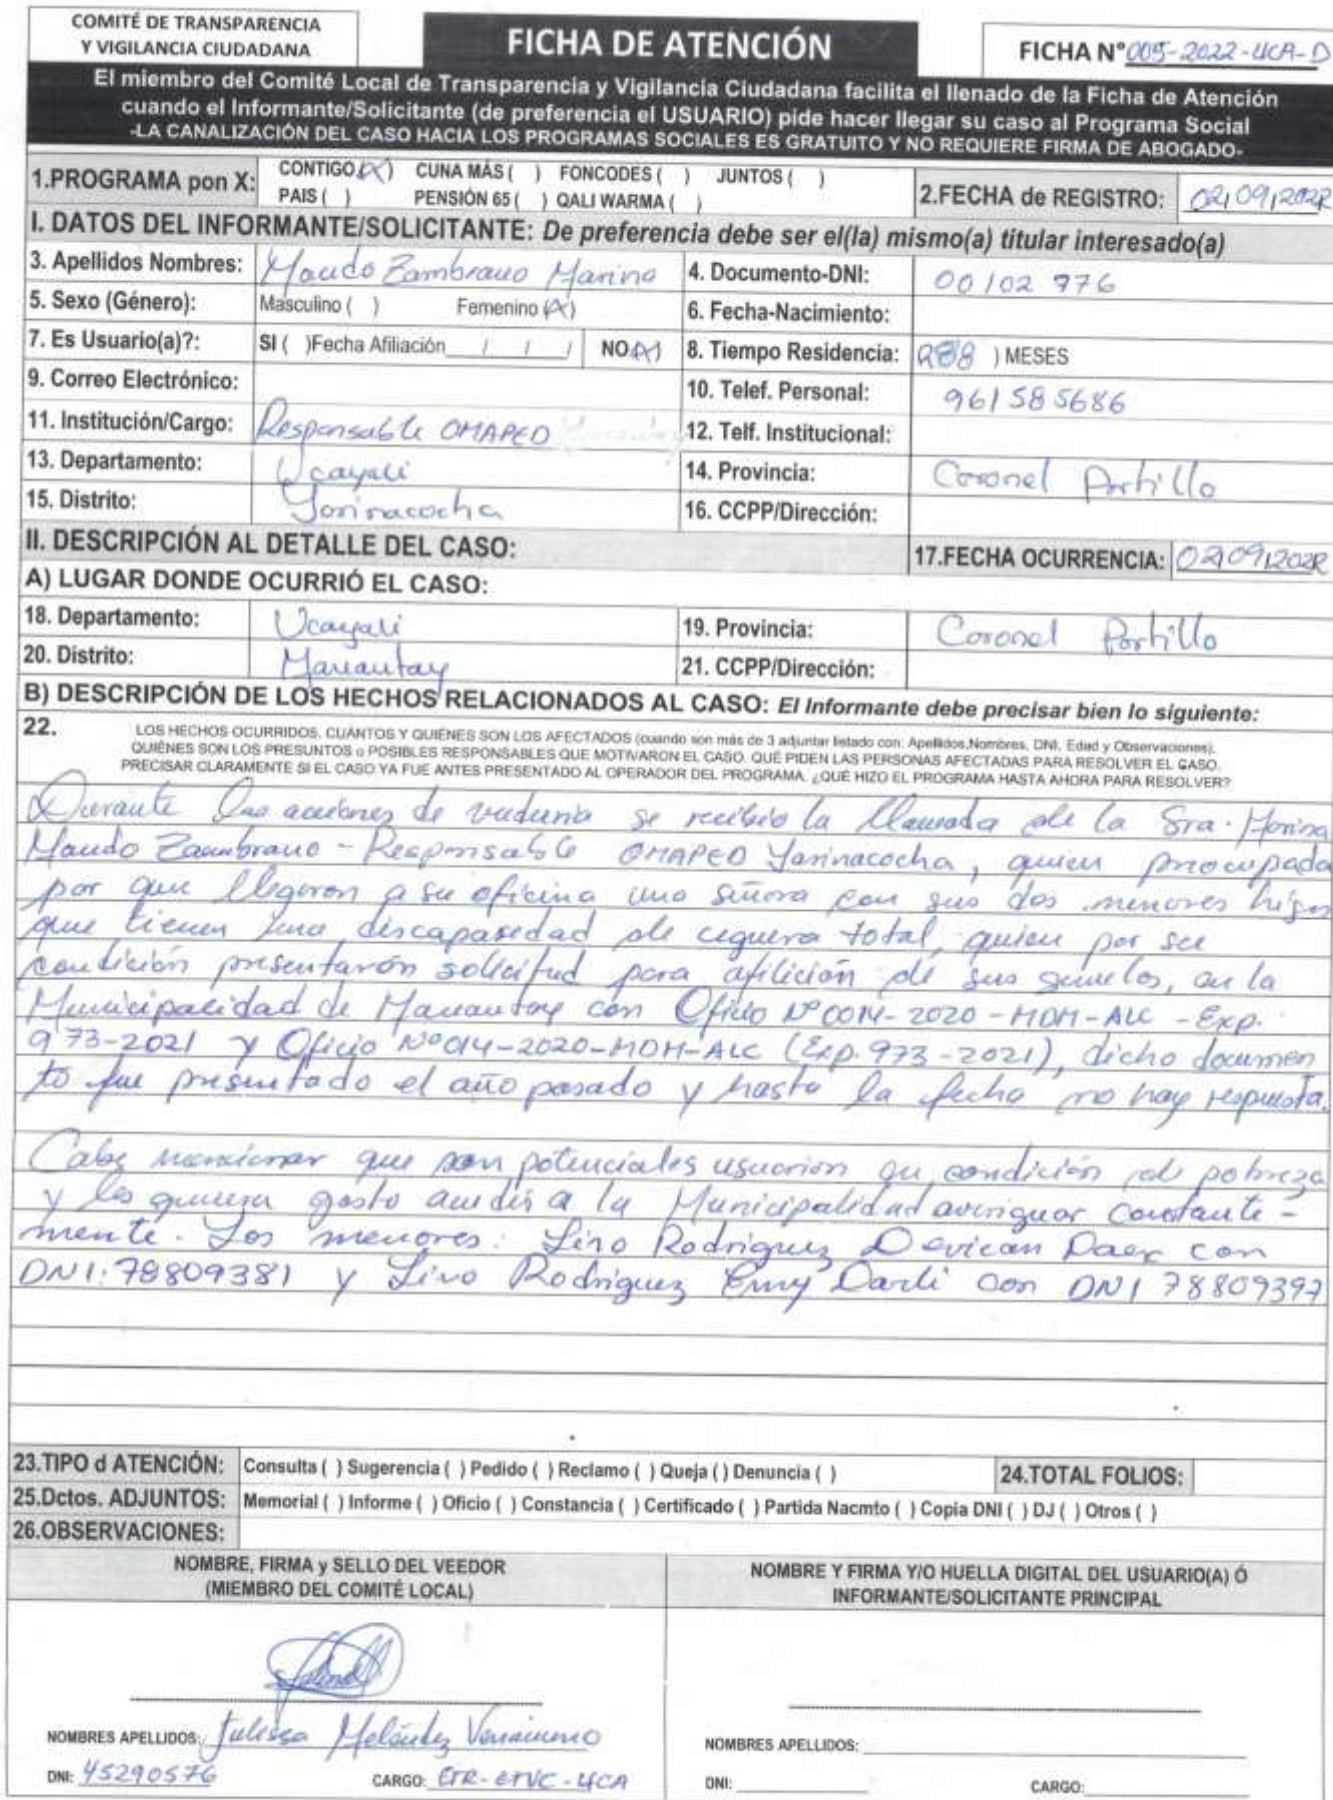 COMITÉ DE TRANSPARENCIA
Y VIGILANCIA CIUDADANA
FICHA DE ATENCIÓN
FICHA N° 005-2022-UCA-D
El miembro del Comité Local de Transparencia y Vigilancia Ciudadana facilita el llenado de la Ficha de Atención
cuando el Informante/Solicitante (de preferencia el USUARIO) pide hacer llegar su caso al Programa Social
-LA CANALIZACIÓN DEL CASO HACIA LOS PROGRAMAS SOCIALES ES GRATUITO Y NO REQUIERE FIRMA DE ABOGADO-
1.PROGRAMA pon X: CONTIGO (X) CUNA MÁS ( ) FONCODES ( ) JUNTOS ( )
PAIS ( ) PENSIÓN 65 ( ) QALI WARMA ( )
2.FECHA de REGISTRO: 02/09/2022
I. DATOS DEL INFORMANTE/SOLICITANTE: De preferencia debe ser el(la) mismo(a) titular interesado(a)
3. Apellidos Nombres: Maudo Zambrano Marina 4. Documento-DNI: 00102976
5. Sexo (Género): Masculino ( ) Femenino (X) 6. Fecha-Nacimiento:
7. Es Usuario(a)?: SI ( )Fecha Afiliación / / / NO (X) 8. Tiempo Residencia: 288 ) MESES
9. Correo Electrónico: 10. Telef. Personal: 961585686
11. Institución/Cargo: Responsable OMAPED 12. Telf. Institucional:
13. Departamento: Ucayali 14. Provincia: Coronel Portillo
15. Distrito: Yarinacocha 16. CCPP/Dirección:
II. DESCRIPCIÓN AL DETALLE DEL CASO: 17.FECHA OCURRENCIA: 02/09/2022
A) LUGAR DONDE OCURRIÓ EL CASO:
18. Departamento: Ucayali 19. Provincia: Coronel Portillo
20. Distrito: Manantay 21. CCPP/Dirección:
B) DESCRIPCIÓN DE LOS HECHOS RELACIONADOS AL CASO: El Informante debe precisar bien lo siguiente:
22. LOS HECHOS OCURRIDOS. CUÁNTOS Y QUIÉNES SON LOS AFECTADOS (cuando son más de 3 adjuntar listado con: Apellidos,Nombres, DNI, Edad y Observaciones).
QUIÉNES SON LOS PRESUNTOS o POSIBLES RESPONSABLES QUE MOTIVARON EL CASO. QUÉ PIDEN LAS PERSONAS AFECTADAS PARA RESOLVER EL CASO.
PRECISAR CLARAMENTE SI EL CASO YA FUE ANTES PRESENTADO AL OPERADOR DEL PROGRAMA. ¿QUÉ HIZO EL PROGRAMA HASTA AHORA PARA RESOLVER?
Durante las acciones de veeduria se recibio la llamada de la Sra. Marina
Maudo Zambrano - Responsable OMAPED Yarinacocha, quien preocupada
por que llegaron a su oficina una señora con sus dos menores hijos
que tienen una discapasedad de ceguera total, quien por su
condición presentarón solicitud para afilición de sus gemelos, en la
Municipalidad de Manantay con Oficio Nº 0014-2020-MDM-ALC - Exp.
973-2021 y Oficio Nº 014-2020-MDM-ALC (Exp. 973-2021), dicho documen
to fue presentado el año pasado y hasta la fecha no hay respuesta.
Cabe mencionar que son potenciales usuarios en condición de pobreza
y les genera gasto acudir a la Municipalidad averiguar constante-
mente. Los menores: Lino Rodriguez Devican Daex con
DNI: 78809381 y Lino Rodriguez Emy Darli con DNI 78809397
23.TIPO d ATENCIÓN: Consulta ( ) Sugerencia ( ) Pedido ( ) Reclamo ( ) Queja ( ) Denuncia ( ) 24.TOTAL FOLIOS:
25.Dctos. ADJUNTOS: Memorial ( ) Informe ( ) Oficio ( ) Constancia ( ) Certificado ( ) Partida Nacmto ( ) Copia DNI ( ) DJ ( ) Otros ( )
26.OBSERVACIONES:
NOMBRE, FIRMA y SELLO DEL VEEDOR
(MIEMBRO DEL COMITÉ LOCAL)
NOMBRE Y FIRMA Y/O HUELLA DIGITAL DEL USUARIO(A) Ó
INFORMANTE/SOLICITANTE PRINCIPAL
NOMBRES APELLIDOS: Julissa Meléndez
NOMBRES APELLIDOS:
DNI: 45290576 CARGO: ETR-CTVC-UCA
DNI: CARGO: